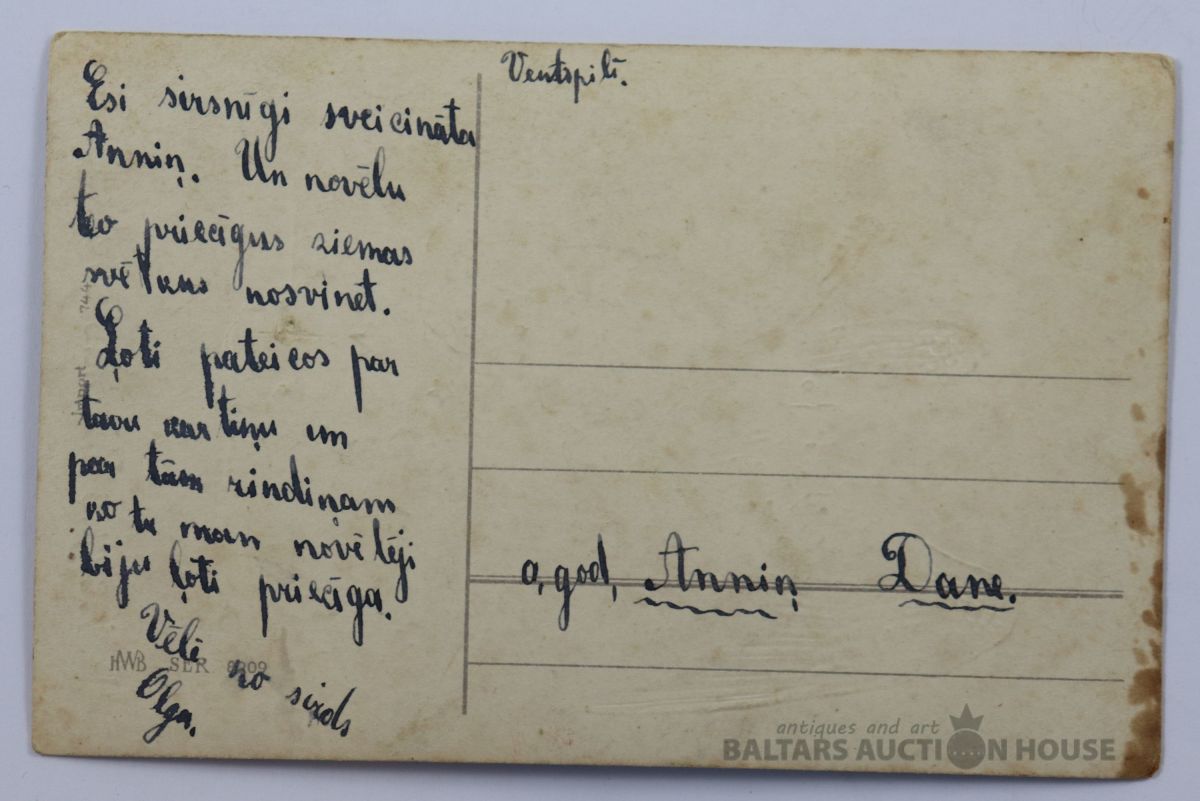 Esi sirsnīgi sveicināta
Anniņ. Un novēlu
tev priecīgus ziemas
svētkus nosvinet.
Ļoti pateicos par
tavu kartiņu un
par tām rindiņam
ko tu man novēlēji
biju ļoti priecīga.
Vēlī no sirds
Olga.
Ventspilī.
a, god, Anniņ Dane.
Import
HWB SER
antiques and art
BALTARS AUCTION HOUSE